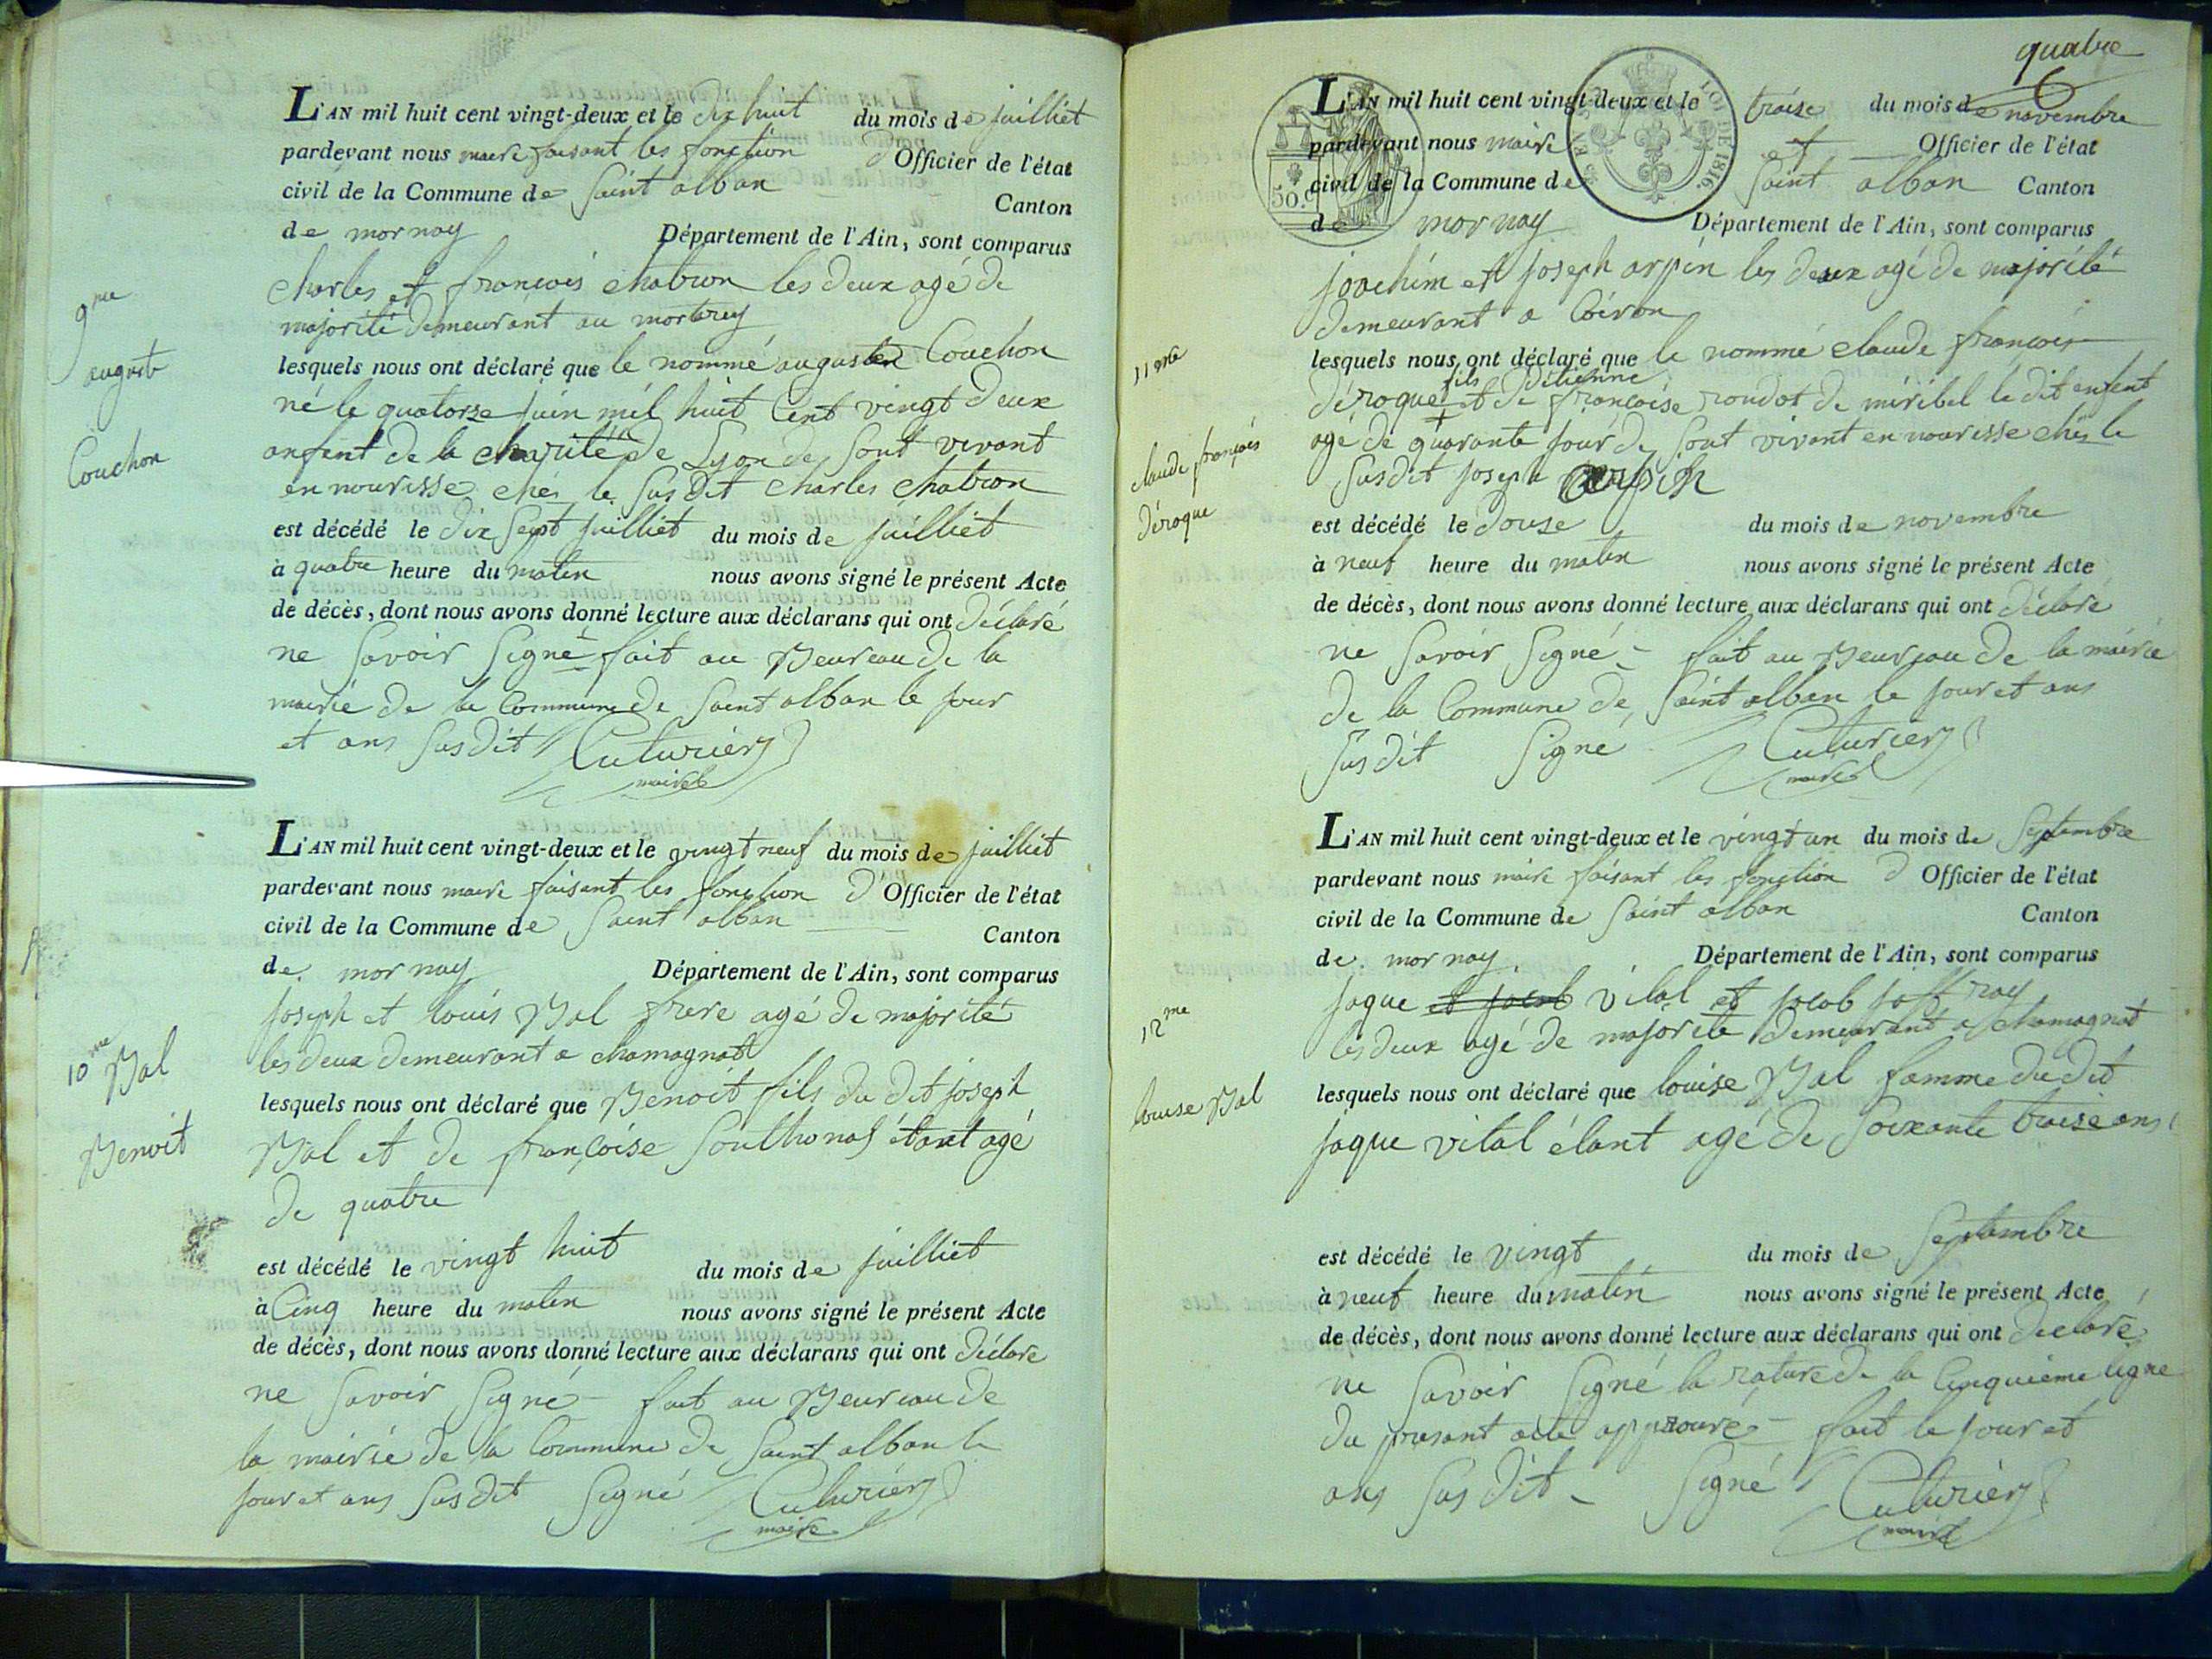 L'AN mil huit cent vingt-deux et le dix huit du mois de juilliet
pardevant nous maire faisant les fonction d'Officier de l'état
civil de la Commune de Saint alban Canton
de mornay Département de l'Ain, sont comparus
Charles et françois chatron les deux agé de
majorité demeurant au mortarey
9me
auguste
Couchon
lesquels nous ont déclaré que le nommé auguste Couchon
né le quatorze juin mil huit Cent vingt deux
anfent de la charité de Lyon de Sont vivant
en nourisse chés le Susdit Charles Chatron
est décédé le dix Sept juilliet du mois de juilliet
à quatre heure du maten nous avons signé le présent Acte
de décès, dont nous avons donné lecture aux déclarans qui ont déclaré
ne Savoir Signé - fait au Beureau de la
mairie de la Commune de Saint alban le jour
et ans Susdit Cuturier
maire
L'AN mil huit cent vingt-deux et le vingt neuf du mois de juilliet
pardevant nous maire faisant les fonction d'Officier de l'état
civil de la Commune de Saint alban Canton
de mornay Département de l'Ain, sont comparus
joseph et louis Bal frere agé de majorité
les deux demeurant a chamagnat
10me Bal
Benoit
lesquels nous ont déclaré que Benoit fils du dit joseph
Bal et de françoise étant agé
de quatre
est décédé le vingt huit du mois de juilliet
à Cinq heure du maten nous avons signé le présent Acte
de décès, dont nous avons donné lecture aux déclarans qui ont déclaré
ne Savoir Signé - fait au Beureau de
la mairie de la Commune de Saint alban le
jour et ans Susdit Signé Cuturier
maire
quatre
50.c
LOI DE 1816.
L'AN mil huit cent vingt-deux et le traise du mois de novembre
pardevant nous maire et Officier de l'état
civil de la Commune de Saint alban Canton
de mornay Département de l'Ain, sont comparus
joachim et joseph arpin les deux agé de majorité
demeurant a Coiron
11me
claude françois
déroque
lesquels nous ont déclaré que le nommé claude françois
fils détienne
déroque et de françoise roudot de miribel le dit enfent
agé de quarante jour de Sont vivant en nourisse chés le
Susdit joseph arpin
est décédé le douse du mois de novembre
à neuf heure du maten nous avons signé le présent Acte
de décès, dont nous avons donné lecture aux déclarans qui ont déclaré
ne Savoir Signé - fait au Beureau de la mairie
de la Commune de Saint alban le jour et ans
Susdit Signé Cuturier
maire
L'AN mil huit cent vingt-deux et le vingt un du mois de Septembre
pardevant nous maire faisant les fonction d Officier de l'état
civil de la Commune de Saint alban Canton
de mornay Département de l'Ain, sont comparus
jaque et jacob vital et jacob joffray
les deux agé de majorité demeurant a chamagnat
12me
louise Bal
lesquels nous ont déclaré que louise Bal famme du dit
jaque vital étant agé de Soixante traise ans
est décédé le vingt du mois de Septembre
à neuf heure du matin nous avons signé le présent Acte
de décès, dont nous avons donné lecture aux déclarans qui ont déclaré
ne Savoir Signé la rature de la Cinquième ligne
du present acte approuvé - fait le jour et
ans Susdit - Signé Cuturier
maire